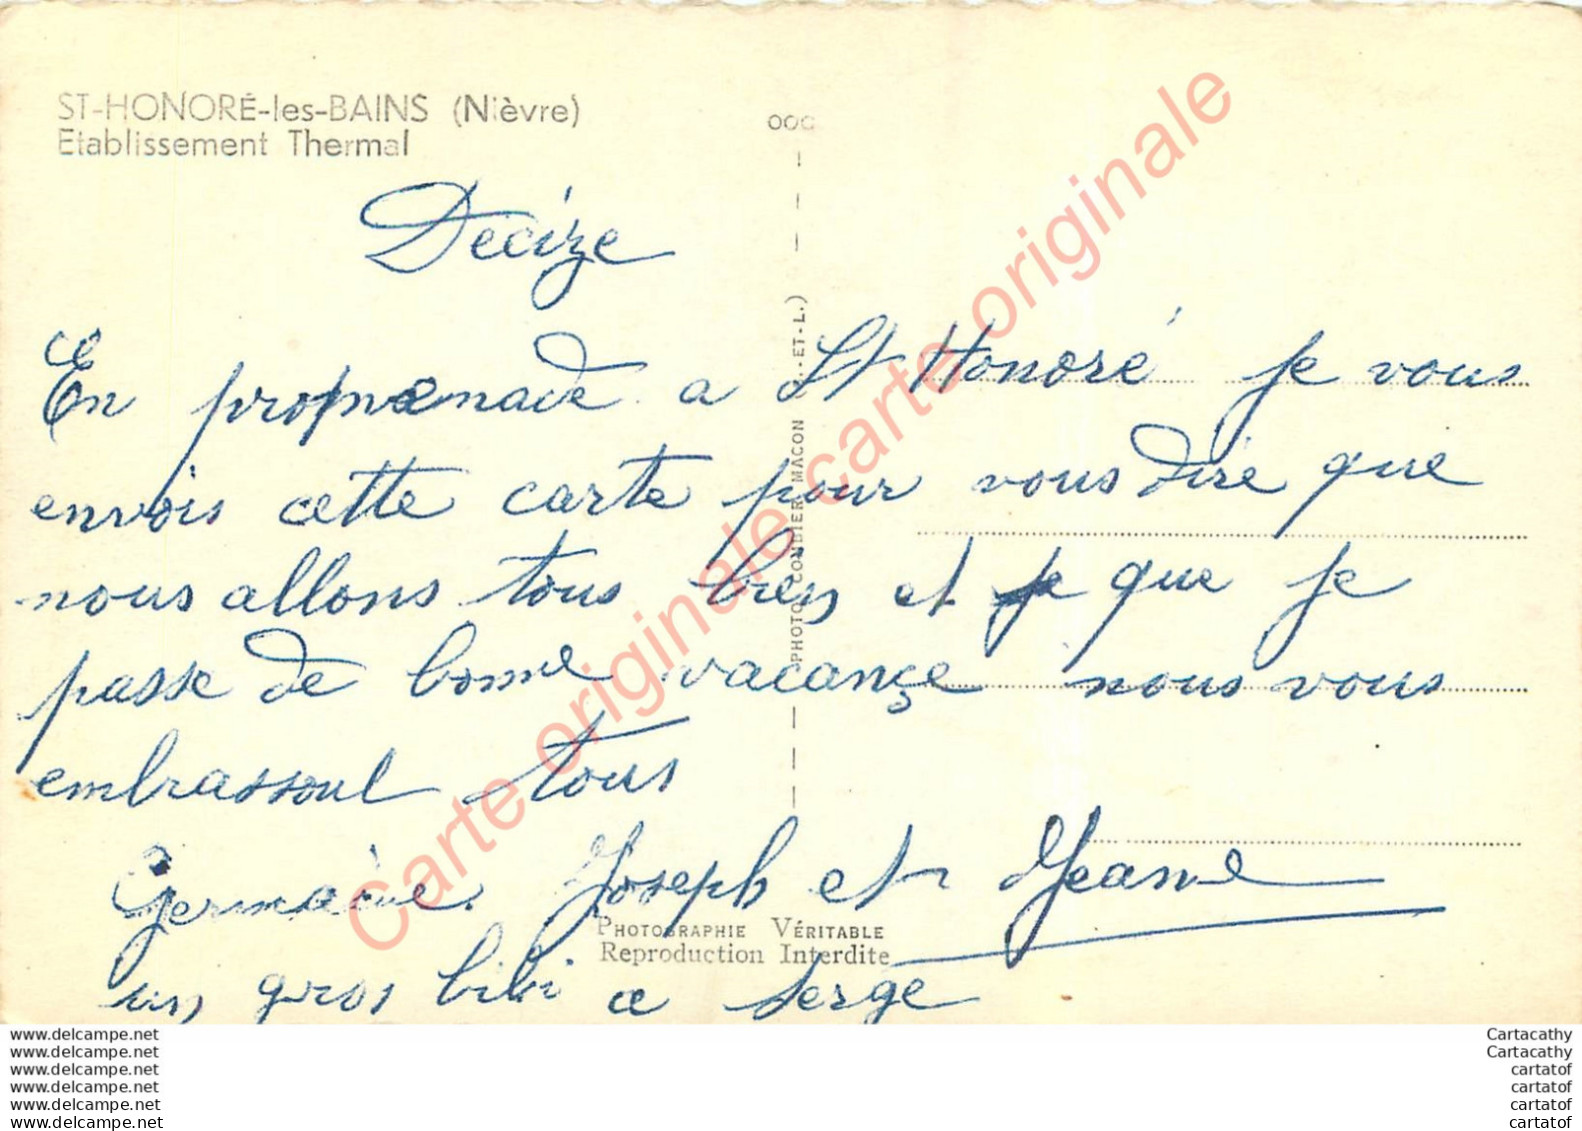 ST-HONORÉ-les-BAINS (Nièvre)
Etablissement Thermal
Decize
En promenade a St Honoré je vous
envois cette carte pour vous dire que
nous allons tous bien et je que je
passe de bonne vacançe nous vous
embrassont tous
Germaine Joseph et Jeanne
un gros bibi a Serge
PHOTO COMBIER MACON
-ET-L.)
PHOTOGRAPHIE VÉRITABLE
Reproduction Interdite
Carte originale carte originale
www.delcampe.net
www.delcampe.net
www.delcampe.net
www.delcampe.net
www.delcampe.net
www.delcampe.net
Cartacathy
Cartacathy
cartatof
cartatof
cartatof
cartatof